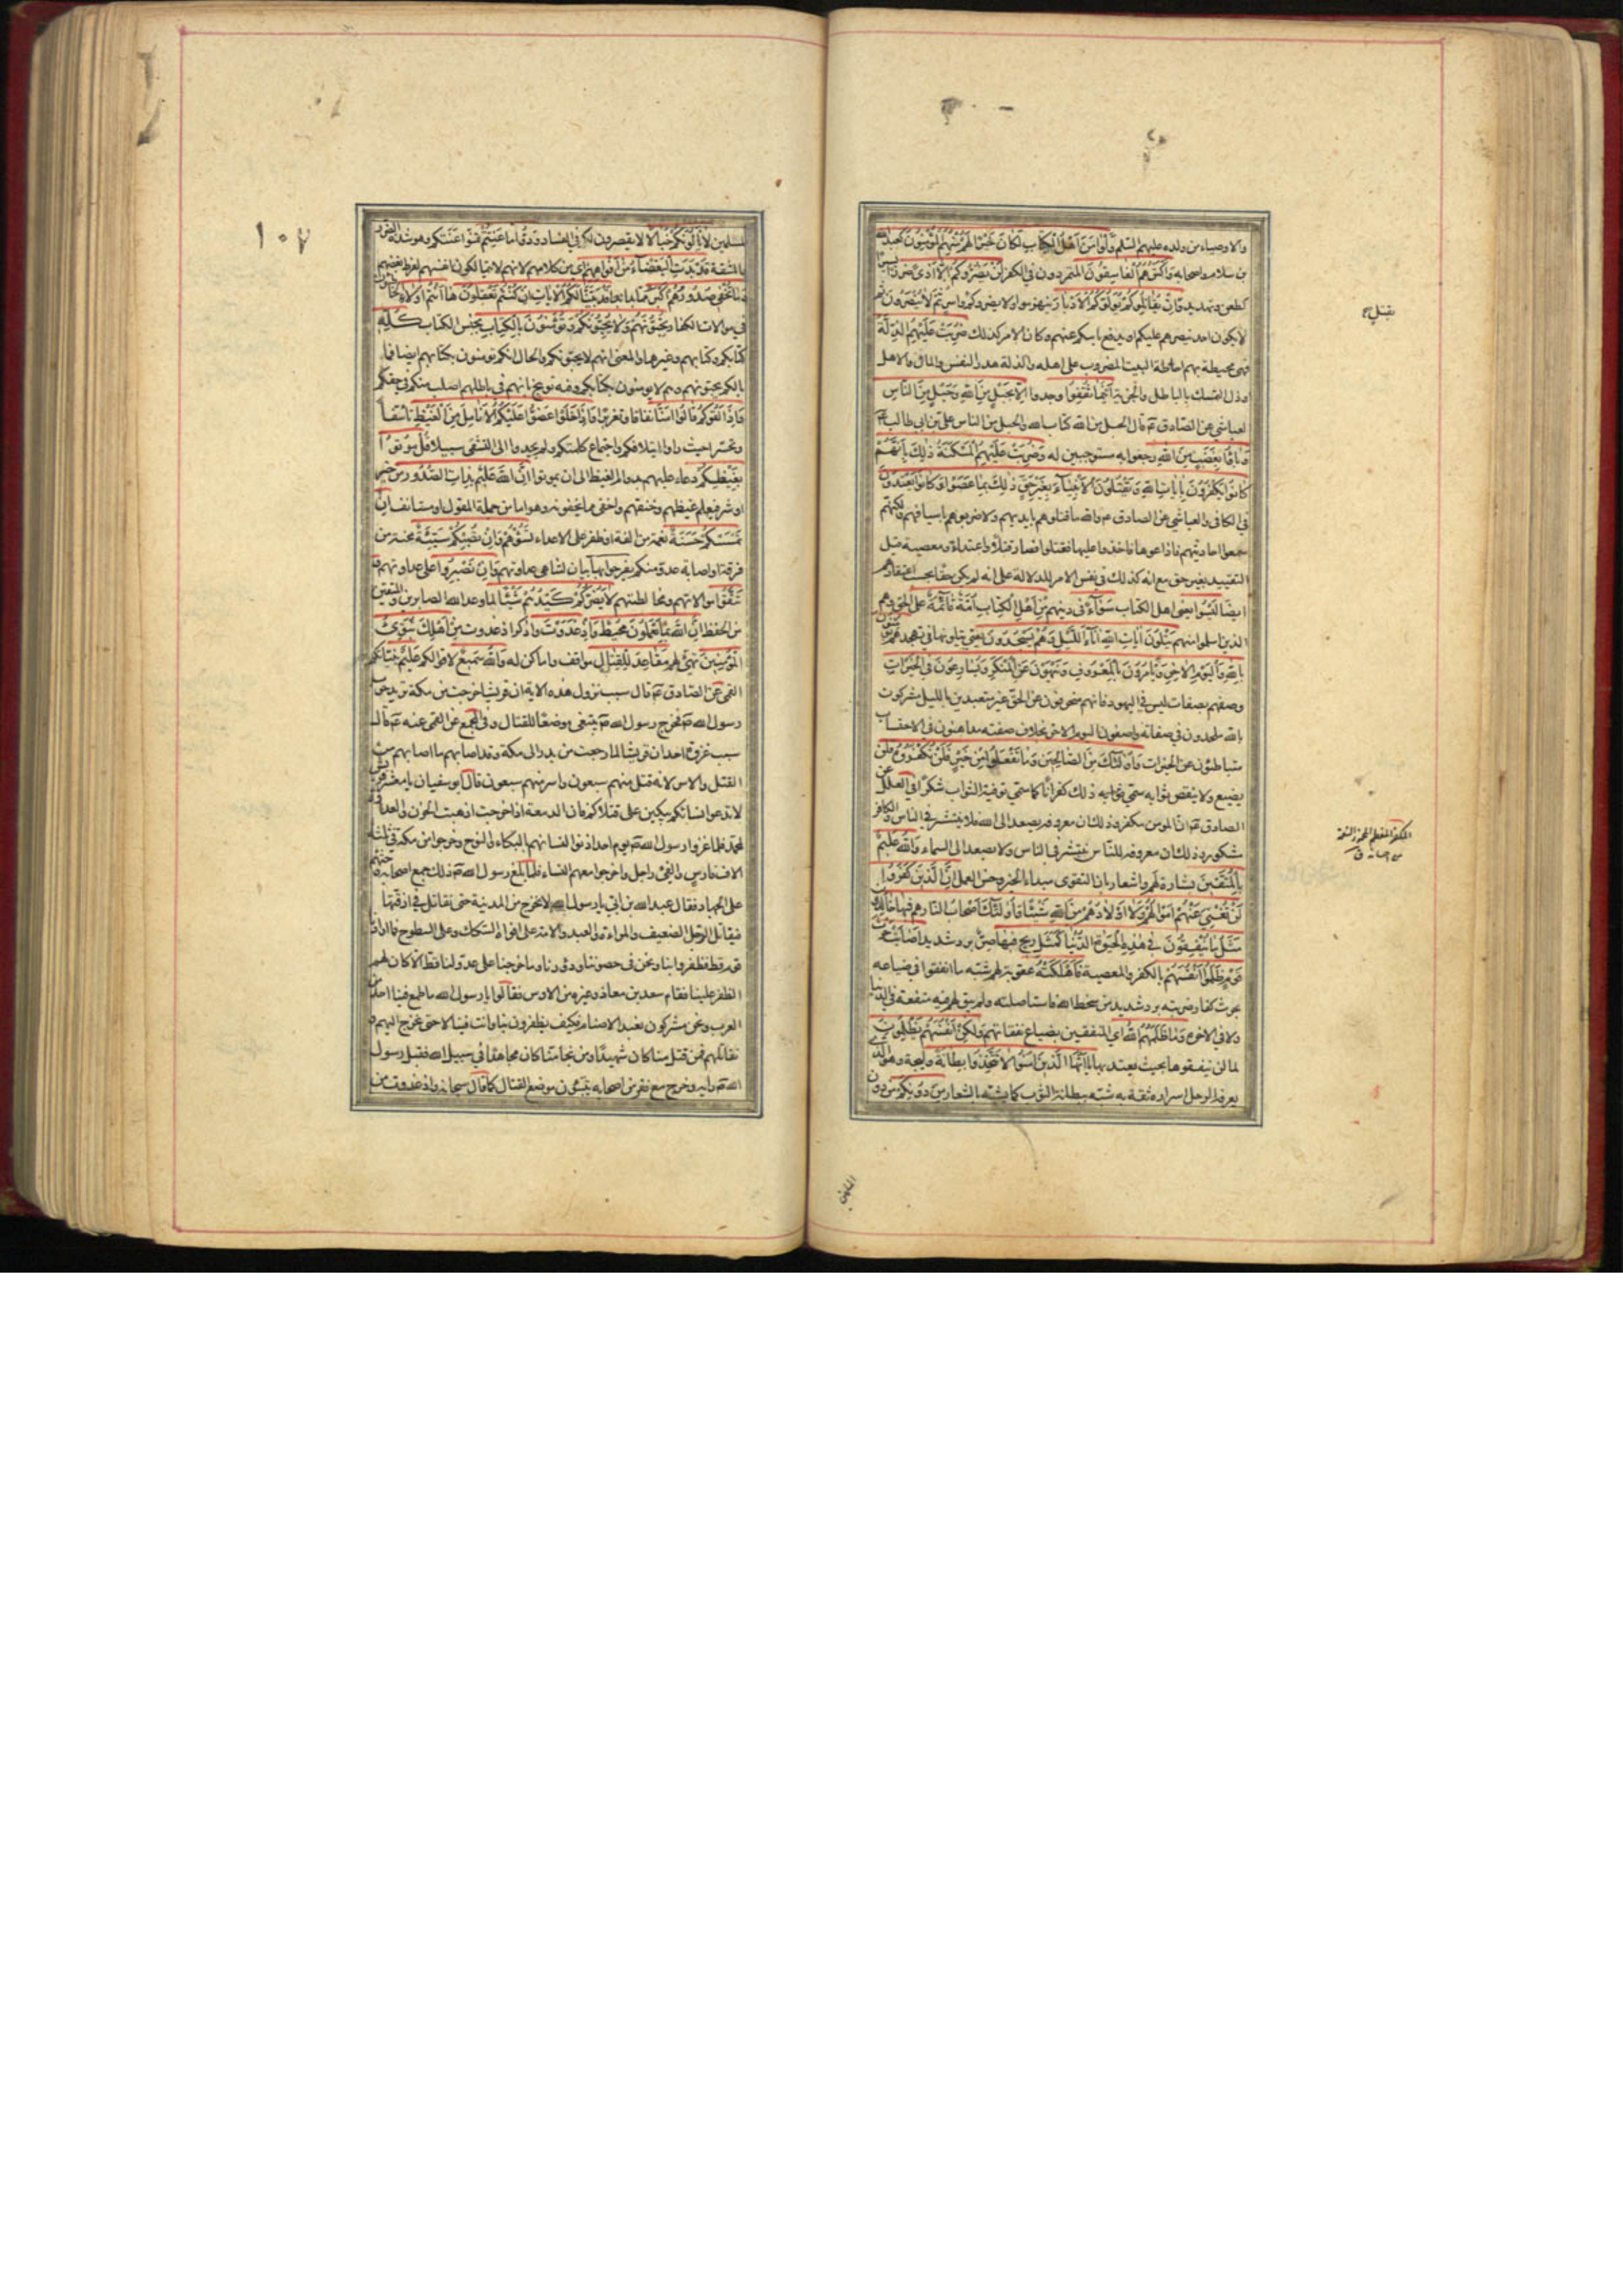 والاوصياء من ولده عليهم السلم وَلَوْ آمَنَ اَهْلُ الْكِتابِ لَكانَ خَيْرًا لَهُمْ مِنْهُمُ الْمُؤْمِنُونَ كعبد الله
بن سلام واصحابه وَاَكْثَرُهُمُ الْفاسِقُونَ المتمردون في الكفر لَنْ يَضُرُّوكُمْ اِلّا اَذىً ضررا يسيرا
كطعن وتهديد وَاِنْ يُقاتِلُوكُمْ يُوَلُّوكُمُ الْاَدْبارَ ينهزموا ولا يضروكم ثُمَّ لا يُنْصَرُونَ ثم
لا يكون احد ينصرهم عليكم او يدفع باسكم عنهم وكان الامر كذلك ضُرِبَتْ عَلَيْهِمُ الذِّلَّةُ
فهي محيطة بهم احاطة البيت المضروب على اهله والذلة هدر النفس والمال والاهل
وذل التمسك بالباطل والجزية اَيْنَما ثُقِفُوا وجدوا اِلّا بِحَبْلٍ مِنَ اللهِ وَحَبْلٍ مِنَ النّاسِ
العياشي عن الصادق ع قال الحبل من الله كتاب الله والحبل من الناس علي بن ابي طالب ع
وَباؤُا بِغَضَبٍ مِنَ اللهِ رجعوا به مستوجبين له وَضُرِبَتْ عَلَيْهِمُ الْمَسْكَنَةُ ذلِكَ بِاَنَّهُمْ
كانُوا يَكْفُرُونَ بِاياتِ اللهِ وَيَقْتُلُونَ الْاَنْبِياءَ بِغَيْرِ حَقٍّ ذلِكَ بِما عَصَوْا وَكانُوا يَعْتَدُونَ
في الكافي والعياشي عن الصادق ع والله ما قتلوهم بايديهم ولا ضربوهم باسيافهم ولكنهم
سمعوا احاديثهم فاذاعوها فاخذوا عليها فقتلوا فصار قتلا واعتداء ومعصية قيل
التقييد بغير حق مع انه كذلك في نفس الامر للدلالة على انه لم يكن حقا بحسب اعتقادهم
ايضا لَيْسُوا يعني اهل الكتاب سَواءً في دينهم مِنْ اَهْلِ الْكِتابِ اُمَّةٌ قائِمَةٌ على الحق وهم
الذين اسلموا منهم يَتْلُونَ اياتِ اللهِ اناءَ اللَّيْلِ وَهُمْ يَسْجُدُونَ يعني يتلونها في تهجدهم يؤمنون
بِاللهِ وَالْيَوْمِ الْاخِرِ وَيَأْمُرُونَ بِالْمَعْرُوفِ وَيَنْهَوْنَ عَنِ الْمُنْكَرِ وَيُسارِعُونَ فِي الْخَيْراتِ
وصفهم بصفات ليس في اليهود فانهم منحرفون عن الحق غير متعبدين بالليل مشركون
بالله ملحدون في صفاته واصفون اليوم الاخر بخلاف صفته مداهنون في الاحتساب
متباطئون عن الخيرات وَاُولئِكَ مِنَ الصّالِحِينَ وَما تَفْعَلُوا مِنْ خَيْرٍ فَلَنْ تُكْفَرُوهُ فلن
يضيع ولا ينقص ثوابه سمي ذلك كفرانا كما سمي توفية الثواب شكرا في العلل عن
الصادق ع ان المؤمن مكفر وذلك ان معروفه يصعد الى الله فلا ينتشر في الناس والكافر
مشكور وذلك ان معروفه للناس ينتشر في الناس ولا يصعد الى السماء وَاللهُ عَلِيمٌ
بِالْمُتَّقِينَ بشارة لهم واشعار بان التقوى مبداء الخير وحسن العمل اِنَّ الَّذِينَ كَفَرُوا
لَنْ تُغْنِيَ عَنْهُمْ اَمْوالُهُمْ وَلا اَوْلادُهُمْ مِنَ اللهِ شَيْئًا وَاُولئِكَ اَصْحابُ النّارِ هم فيها خالدون
مَثَلُ ما يُنْفِقُونَ فِي هذِهِ الْحَيوةِ الدُّنْيا كَمَثَلِ رِيحٍ فِيها صِرٌّ برد شديد اَصابَتْ حَرْثَ
قَوْمٍ ظَلَمُوا اَنْفُسَهُمْ بالكفر والمعصية فَاَهْلَكَتْهُ عقوبة لهم شبه ما انفقوا في ضياعه
بحرث كفار ضربته برد شديد من سخط الله فاستاصلته ولم يبق لهم فيه منفعة في الدنيا
ولا في الاخرة وَما ظَلَمَهُمُ اللهُ اي المنفقين بضياع نفقاتهم وَلكِنْ اَنْفُسَهُمْ يَظْلِمُونَ
لما لم ينفقوها بحيث يعتد بها يا اَيُّهَا الَّذِينَ امَنُوا لا تَتَّخِذُوا بِطانَةً وليجة وهو الذي
يعرفه الرجل اسراره ثقة به شبه ببطانة الثوب كما يشبه بالشعار مِنْ دُونِكُمْ من دون
المسلمين
١٠٧
المسلمين لا يَأْلُونَكُمْ خَبالًا لا يقصرون لكم في الفساد وَدُّوا ما عَنِتُّمْ تمنوا عنتكم وهو شدة الضرر
والمشقة قَدْ بَدَتِ الْبَغْضاءُ مِنْ اَفْواهِهِمْ اي من كلامهم لانهم لا يتمالكون انفسهم لفرط بغضهم
وَما تُخْفِي صُدُورُهُمْ اَكْبَرُ مما بدا قَدْ بَيَّنّا لَكُمُ الْاياتِ اِنْ كُنْتُمْ تَعْقِلُونَ ها اَنْتُمْ اُولاءِ الخاطئون
في موالات الكفار تُحِبُّونَهُمْ وَلا يُحِبُّونَكُمْ وَتُؤْمِنُونَ بِالْكِتابِ بجنس الكتاب كُلِّهِ
كتابكم وكتابهم وغيرهما والمعنى انهم لا يحبونكم والحال انكم تؤمنون بكتابهم ايضا فما
بالكم تحبونهم وهم لا يؤمنون بكتابكم وفيه توبيخ بانهم في باطلهم اصلب منكم في حقكم
وَاِذا لَقُوكُمْ قالُوا امَنّا نفاقا وتغريرا وَاِذا خَلَوْا عَضُّوا عَلَيْكُمُ الْاَنامِلَ مِنَ الْغَيْظِ تاسفا
وتحسرا حيث راوا ائتلافكم واجتماع كلمتكم ولم يجدوا الى التشفي سبيلا قُلْ مُوتُوا
بِغَيْظِكُمْ دعاء عليهم بدوام الغيظ الى ان يموتوا اِنَّ اللهَ عَلِيمٌ بِذاتِ الصُّدُورِ من خير
او شر فيعلم غيظهم وحنقهم واخفى ما يخفونه وهو اما من جملة المقول او مستانف اِنْ
تَمْسَسْكُمْ حَسَنَةٌ نعمة من الفة او ظفر على الاعداء تَسُؤْهُمْ وَاِنْ تُصِبْكُمْ سَيِّئَةٌ محنة من
فرقة او اصابة عدو منكم يَفْرَحُوا بِها بيان لتناهي عداوتهم وَاِنْ تَصْبِرُوا على عداوتهم وَ
تَتَّقُوا موالاتهم ومخالطتهم لا يَضُرُّكُمْ كَيْدُهُمْ شَيْئًا لما وعد الله الصابرين والمتقين
من الحفظ اِنَّ اللهَ بِما يَعْمَلُونَ مُحِيطٌ وَاِذْ غَدَوْتَ واذكر اذ غدوت مِنْ اَهْلِكَ تُبَوِّئُ
الْمُؤْمِنِينَ تهيئ لهم مَقاعِدَ لِلْقِتالِ مواقف واماكن له وَاللهُ سَمِيعٌ لاقوالكم عَلِيمٌ بنياتكم
القمي عن الصادق ع قال سبب نزول هذه الاية ان قريشا خرجت من مكة تريد حرب
رسول الله ص فخرج رسول الله ص يبتغي موضعا للقتال وفي المجمع عن القمي عنه ع قال
سبب غزوة احد ان قريشا لما رجعت من بدر الى مكة وقد اصابهم ما اصابهم من
القتل والاسر لانه قتل منهم سبعون واسر منهم سبعون قال ابو سفيان يا معشر قريش
لا تدعوا نساءكم يبكين على قتلاكم فان الدمعة اذا خرجت اذهبت الحزن والعداوة
لمحمد فلما غزوا رسول الله ص يوم احد اذنوا لنسائهم بالبكاء والنوح وخرجوا من مكة في ثلثة
الاف فارس والفي راجل واخرجوا معهم النساء فلما بلغ رسول الله ص ذلك جمع اصحابه وحثهم
على الجهاد فقال عبد الله بن ابي يا رسول الله لا نخرج من المدينة حتى نقاتل في ازقتها
فيقاتل الرجل الضعيف والمراءة والعبد والامة على افواه السكك وعلى السطوح فما ارادنا
قوم قط فظفروا بنا ونحن في حصوننا ودورنا وما خرجنا على عدو لنا قط الا كان لهم
الظفر علينا فقام سعد بن معاذ وغيره من الاوس فقالوا يا رسول الله ما طمع فينا احد من
العرب ونحن مشركون نعبد الاصنام فكيف يظفرون بنا وانت فينا لا حتى نخرج اليهم و
نقاتلهم فمن قتل منا كان شهيدا ومن نجا منا كان مجاهدا في سبيل الله فقبل رسول
الله ص رايه وخرج مع نفر من اصحابه يتبوؤن موضع القتال كما قال سبحانه واذ غدوت من